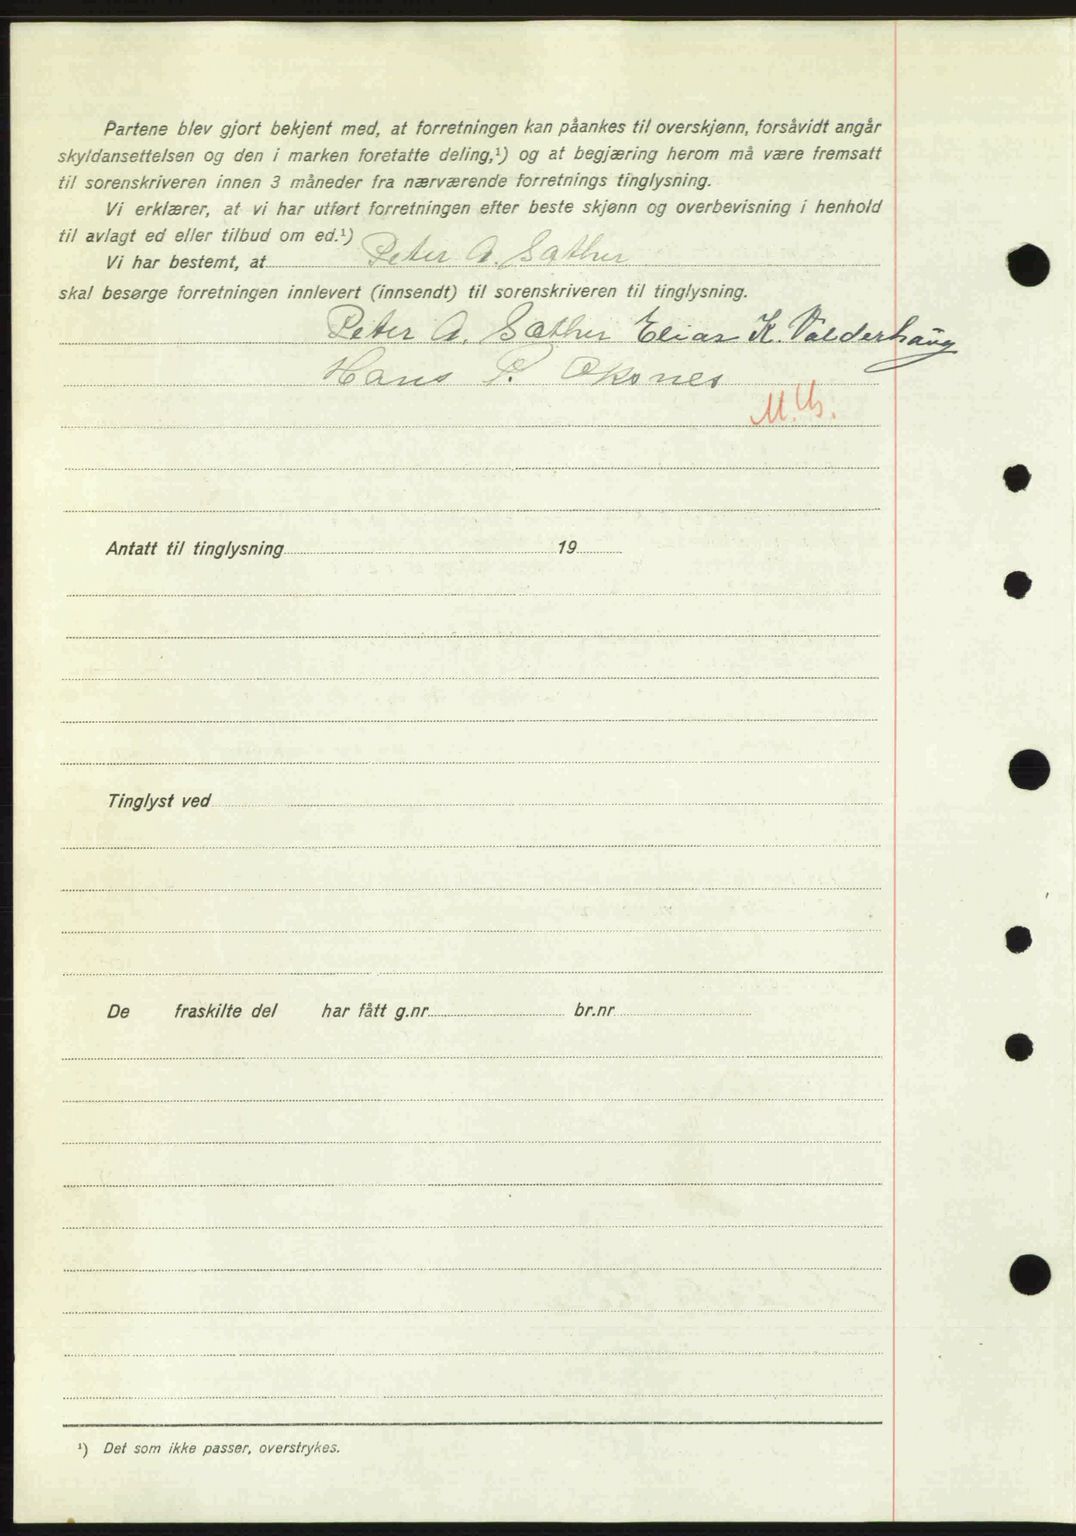 Partene blev gjort bekjent med, at forretningen kan påankes til overskjønn, forsåvidt angår
skyldansettelsen og den i marken foretatte deling,¹) og at begjæring herom må være fremsatt
til sorenskriveren innen 3 måneder fra nærværende forretnings tinglysning.
Vi erklærer, at vi har utført forretningen efter beste skjønn og overbevisning i henhold
til avlagt ed eller tilbud om ed.¹)
Vi har bestemt, at Peter A. Sæther
skal besørge forretningen innlevert (innsendt) til sorenskriveren til tinglysning.
Peter A. Sæther Elias K. Valderhaug
Hans P. Oksnes
Antatt til tinglysning 19
Tinglyst ved
De fraskilte del har fått g.nr. br.nr.
¹) Det som ikke passer, overstrykes.